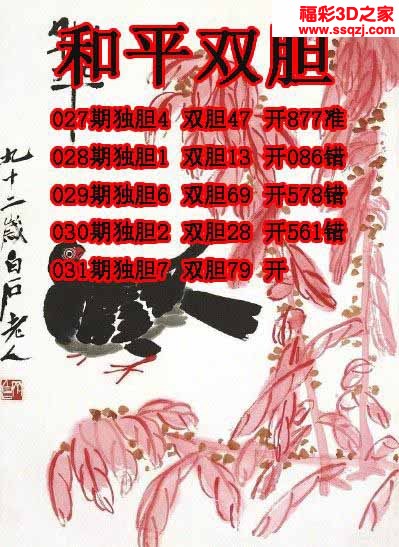 福彩3D之家
www.ssqzj.com
和平双胆
027期独胆4 双胆47 开877准
028期独胆1 双胆13 开086错
029期独胆6 双胆69 开578错
030期独胆2 双胆28 开561错
031期独胆7 双胆79 开
九十二岁白石老人